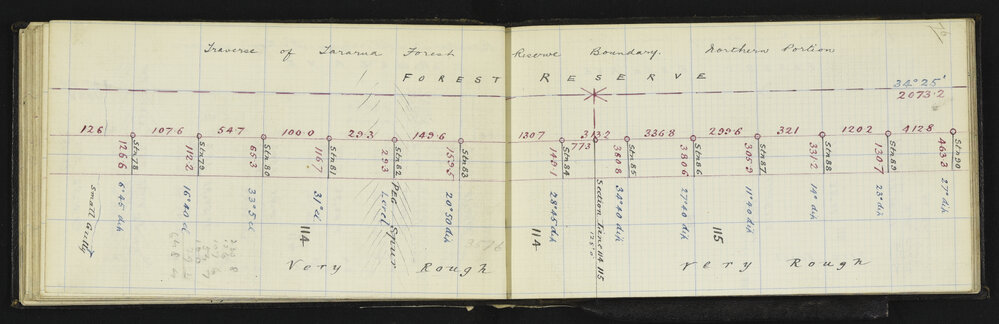 Traverse of Tararua Forest Reserve Boundary. Northern Portion
FOREST RESERVE
34° 25'
2073.2
126 107.6 54.7 100.0 29.3 149.6 130.7 313.2 336.8 299.6 321 120.2 412.8
773
Stn 78 Stn 79 Stn 80 Stn 81 Stn 82 Stn 83 Stn 84 Stn 85 Stn 86 Stn 87 Stn 88 Stn 89 Stn 90
126.6 112.2 65.3 116.7 29.3 159.5 149.1 380.8 380.6 305.9 331.2 130.7 463.3
6° 45 dih
16° 40 el
33° 5 el
31° el
Level
Peg Spur
20° 50 dih
28° 45 dih
Section Line 114 115
34° 40 dih
27° 40 dih
11° 40 dih
14° dih
23° dih
27° dih
Small Gully
114
114
115
Very Rough
Very Rough